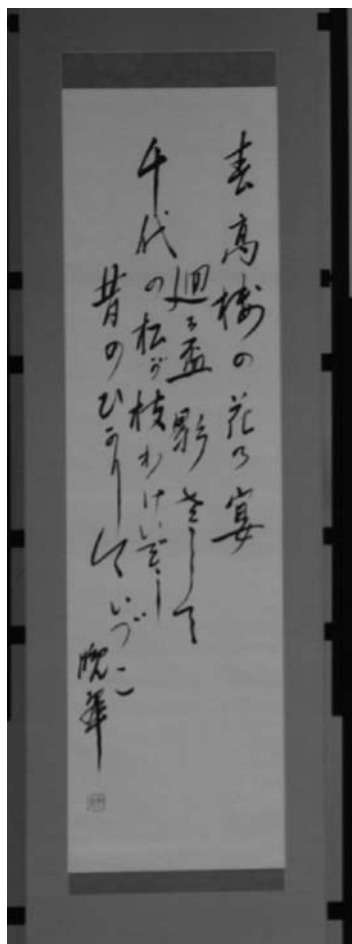 春高楼の花の宴
廻る盃影さして
千代の松が枝わけいでし
昔のひかりいまいづこ
晩翠